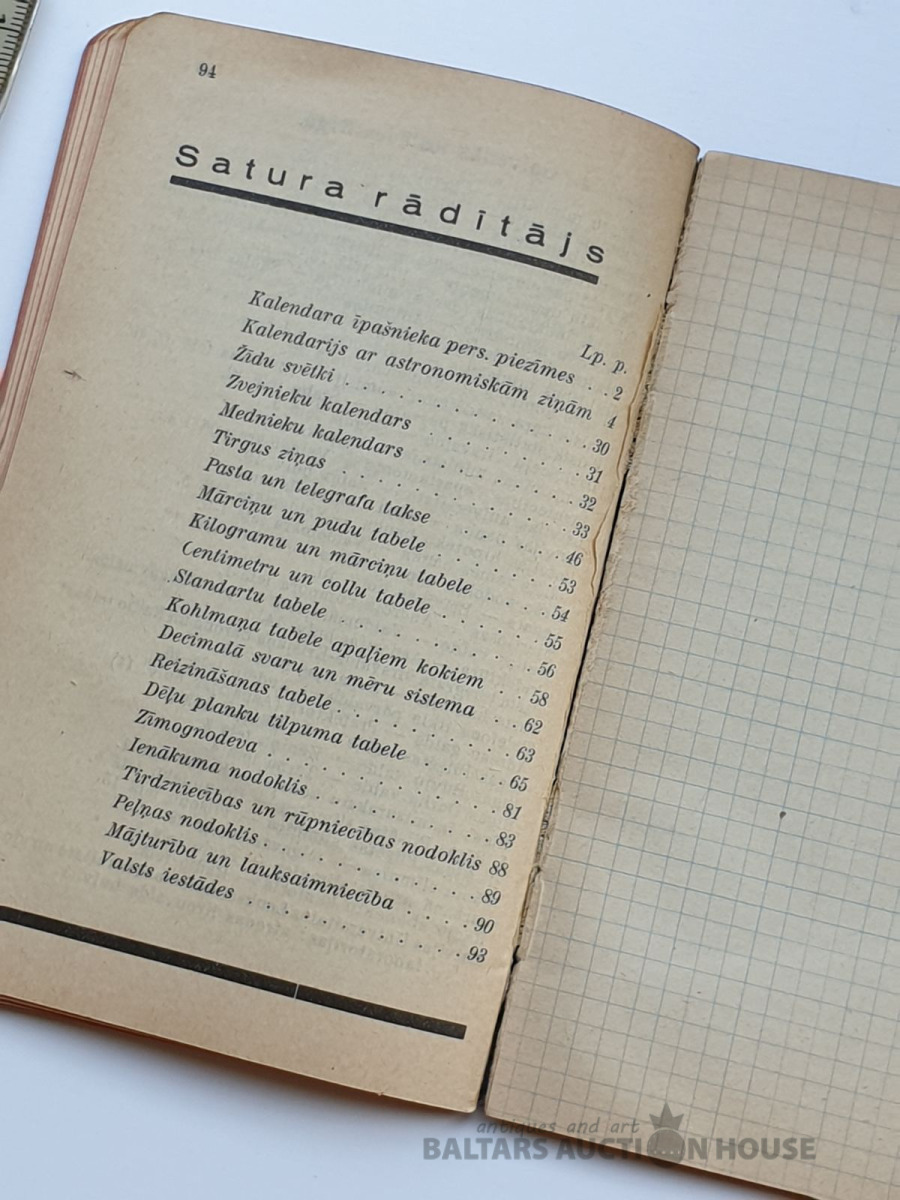 94
Satura rādītājs
Lp. p.
Kalendara īpašnieka pers. piezīmes . . 2
Kalendarijs ar astronomiskām ziņām 4
Žīdu svētki . . . . . . . . . . . . 30
Zvejnieku kalendars . . . . . . . . 31
Mednieku kalendars . . . . . . . . 32
Tirgus ziņas . . . . . . . . . . . . 33
Pasta un telegrafa takse . . . . . . 46
Mārciņu un pudu tabele . . . . . . 53
Kilogramu un mārciņu tabele . . . . 54
Centimetru un collu tabele . . . . . 55
Standartu tabele . . . . . . . . . . 56
Kohlmaņa tabele apaļiem kokiem . . 58
Decimalā svaru un mēru sistema . . 62
Reizināšanas tabele . . . . . . . . . 63
Dēļu planku tilpuma tabele . . . . . 65
Zīmognodeva . . . . . . . . . . . . 81
Ienākuma nodoklis . . . . . . . . . 83
Tirdzniecības un rūpniecības nodoklis 88
Peļņas nodoklis . . . . . . . . . . . 89
Mājturība un lauksaimniecība . . . . 90
Valsts iestādes . . . . . . . . . . . 93
antiques and art
BALTARS AUCTION HOUSE